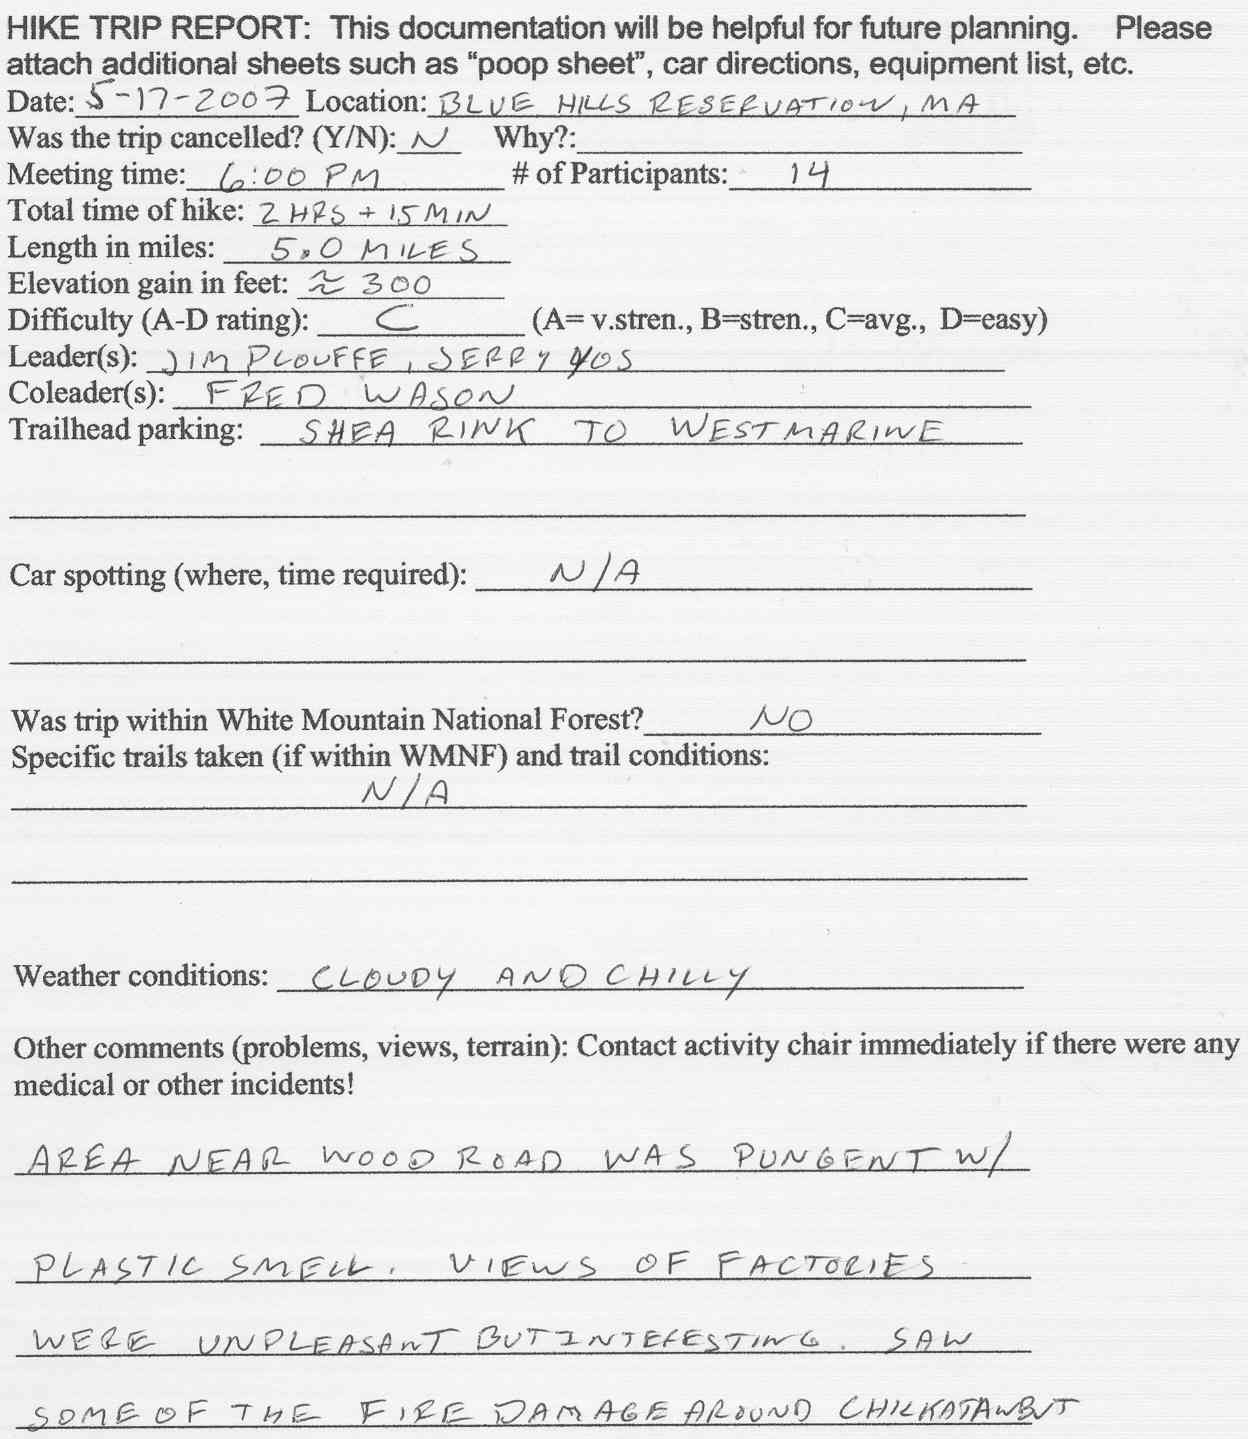 HIKE TRIP REPORT: This documentation will be helpful for future planning. Please
attach additional sheets such as “poop sheet”, car directions, equipment list, etc.
Date: 5-17-2007 Location: BLUE HILLS RESERVATION, MA
Was the trip cancelled? (Y/N): N Why?:
Meeting time: 6:00 PM # of Participants: 14
Total time of hike: 2 HRS + 15 MIN
Length in miles: 5.0 MILES
Elevation gain in feet: ≈ 300
Difficulty (A-D rating): C (A= v.stren., B=stren., C=avg., D=easy)
Leader(s): JIM PLOUFFE, JERRY YOS
Coleader(s): FRED WASON
Trailhead parking: SHEA RINK TO WEST MARINE
Car spotting (where, time required): N/A
Was trip within White Mountain National Forest? NO
Specific trails taken (if within WMNF) and trail conditions:
N/A
Weather conditions: CLOUDY AND CHILLY
Other comments (problems, views, terrain): Contact activity chair immediately if there were any
medical or other incidents!
AREA NEAR WOOD ROAD WAS PUNGENT W/
PLASTIC SMELL. VIEWS OF FACTORIES
WERE UNPLEASANT BUT INTERESTING. SAW
SOME OF THE FIRE DAMAGE AROUND CHICKATAWBUT